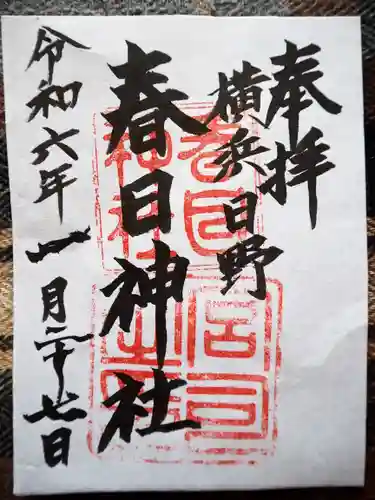 奉拝
横浜日野
春日神社
令和六年一月二十七日
春日神社
宮司之印